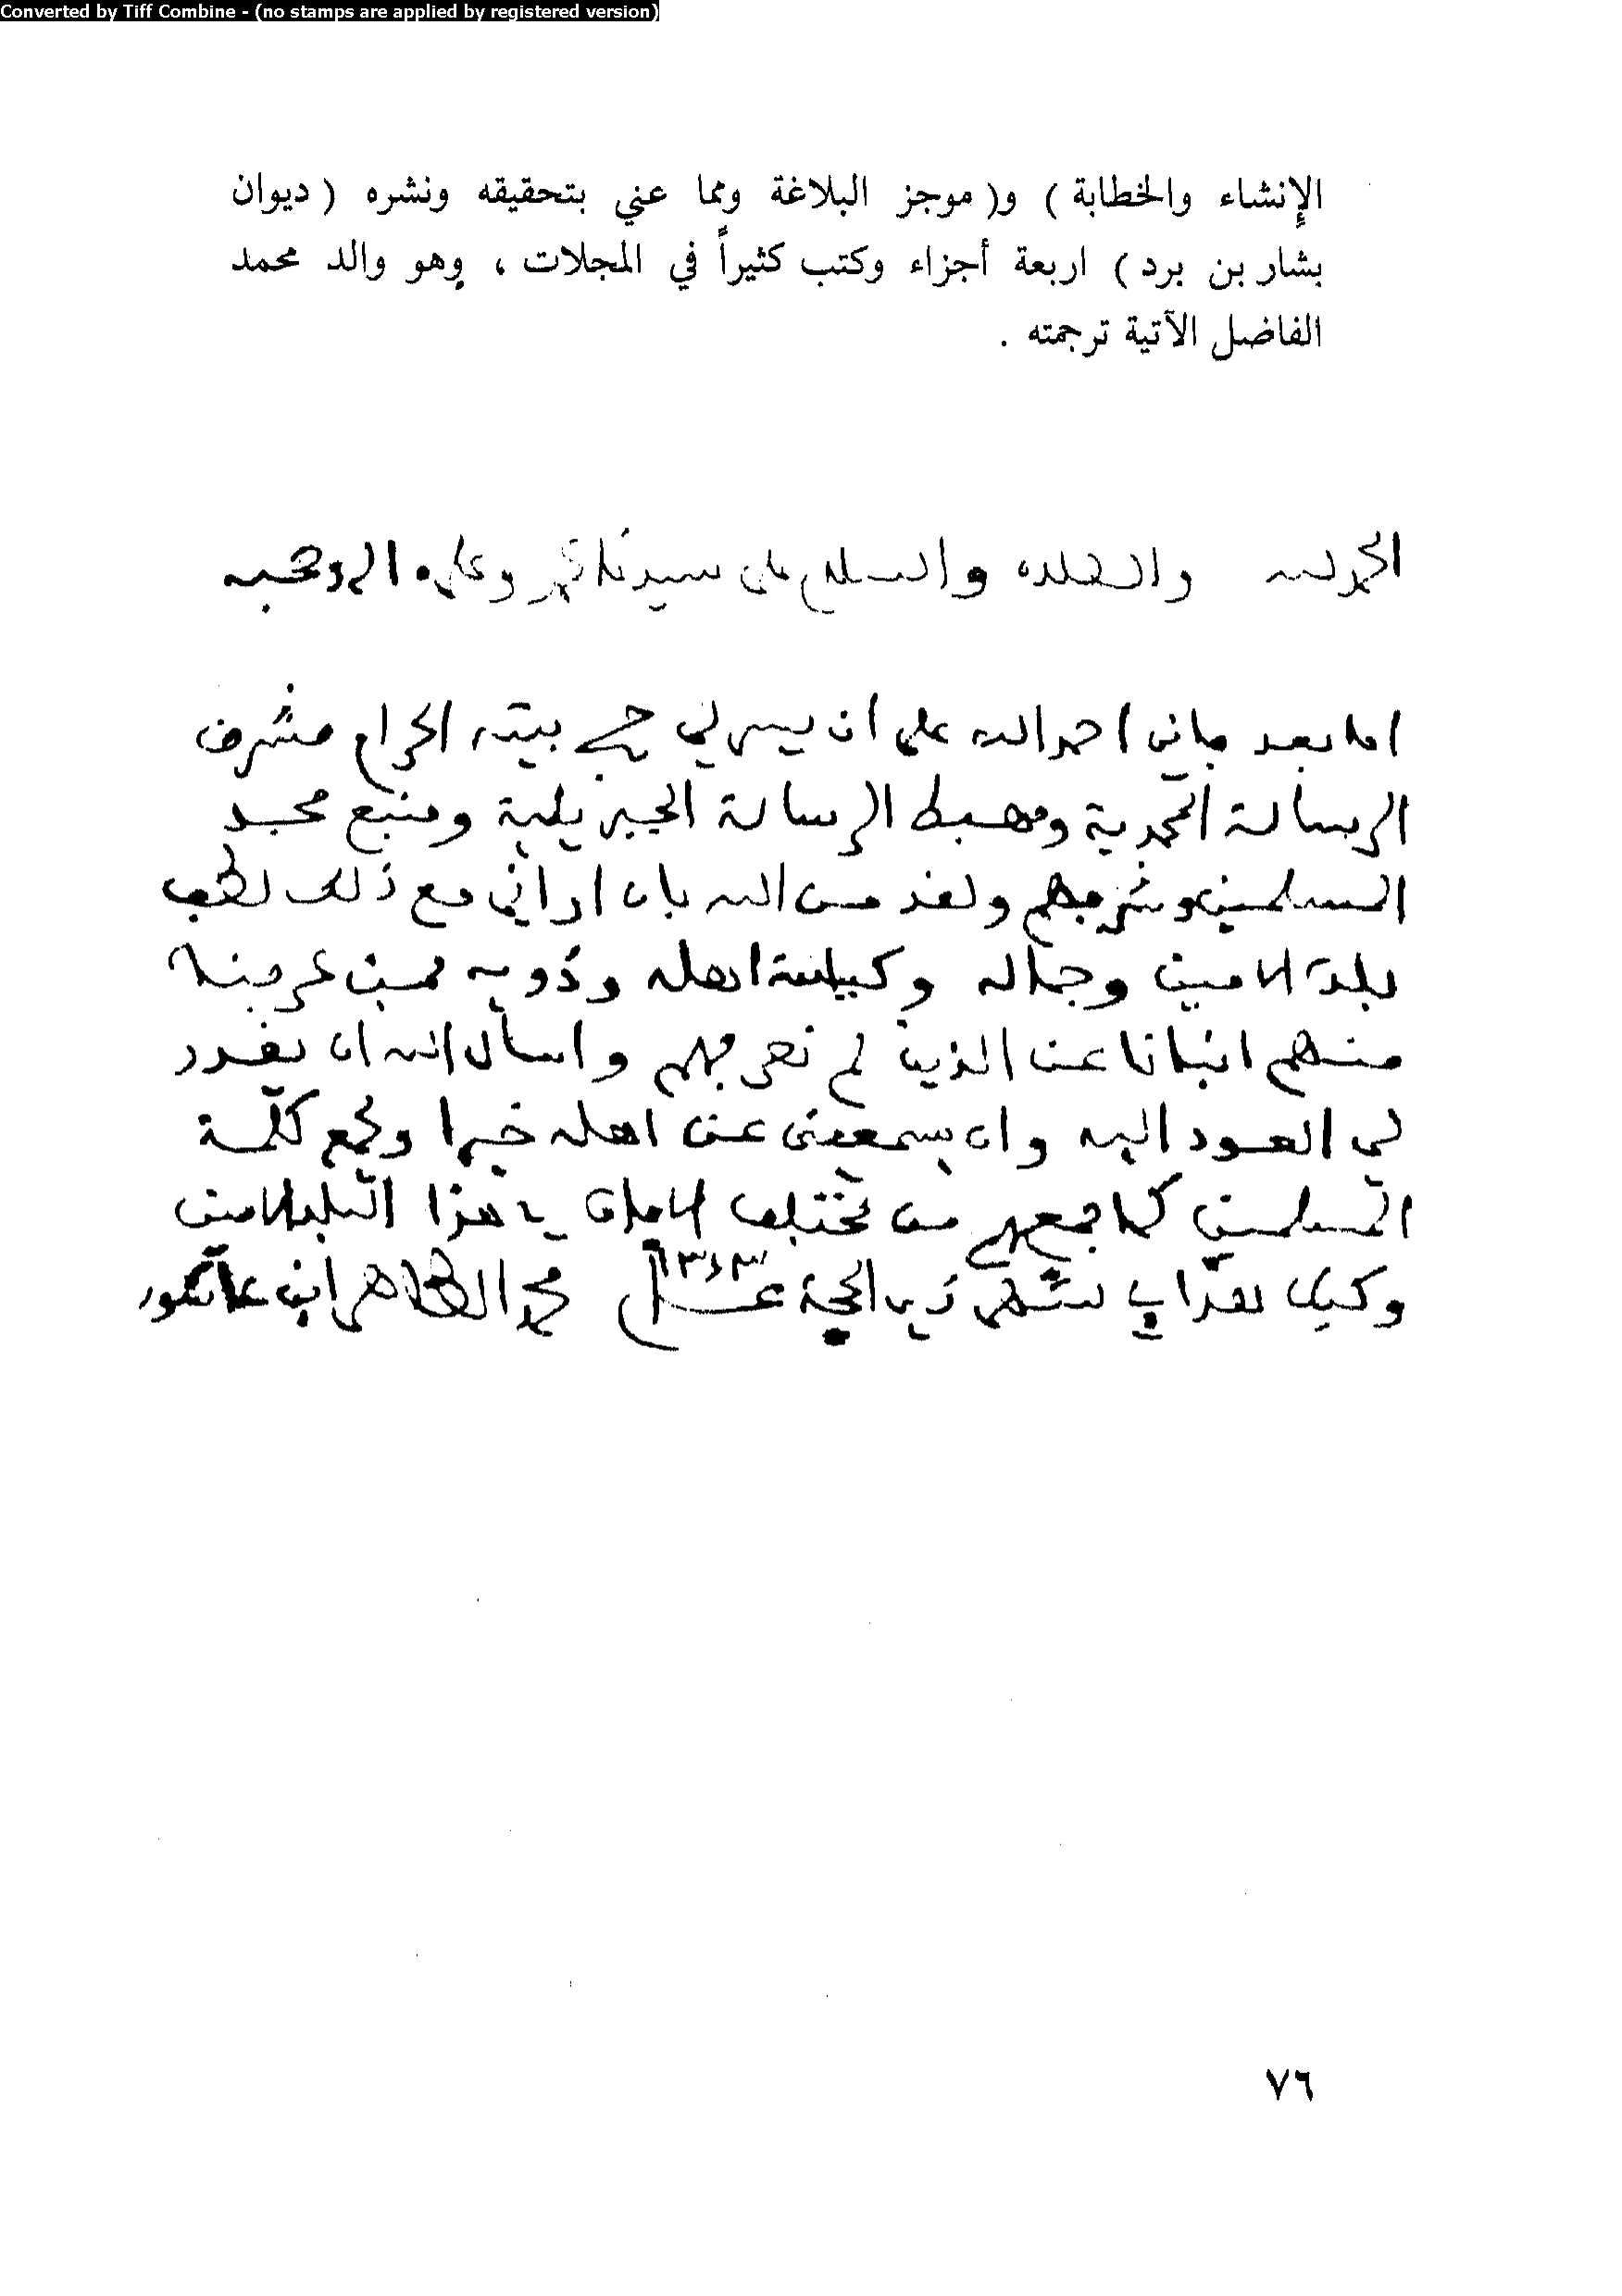 Converted by Tiff Combine - (no stamps are applied by registered version)
الإنشاء والخطابة ) و( موجز البلاغة ومما عني بتحقيقه ونشره ( ديوان
بشار بن برد ) اربعة أجزاء وكتب كثيراً في المجلات ، وهو والد محمد
الفاضل الآتية ترجمته .
الحمد لله والصلاة والسلام على سيدنا محمد وعلى اله وصحبه
اما بعد فاني احمد الله على ان يسر لي حج بيته الحرام مشرق
الرسالة المحمدية ومهبط الرسالة الجبريلية ومنبع مجد
المسلمين وشرفهم ولقد من الله بان اراني مع ذلك لطف
بلده الامين وجماله وكياسة اهله وذويه ممن عرفنا
منهم انبانا عن الذين لم نعرفهم واسأل الله ان يقدر
لي العود اليه وان يسمعني عن اهله خيرا ويجمع كلمة
المسلمين كما جمعهم من مختلف الافاق في هذا البلد الامين
وكتب لشهر ذي الحجة عام محمد الطاهر ابن عاشور
٧٦